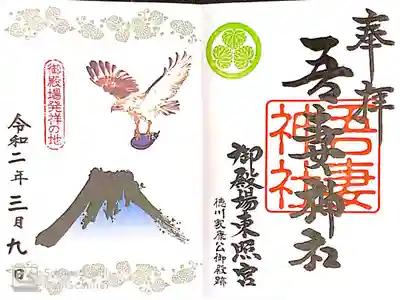 奉拝
吾妻神社
吾妻神社
御殿場東照宮
徳川家康公御殿跡
御殿場発祥の地
令和二年三月九日